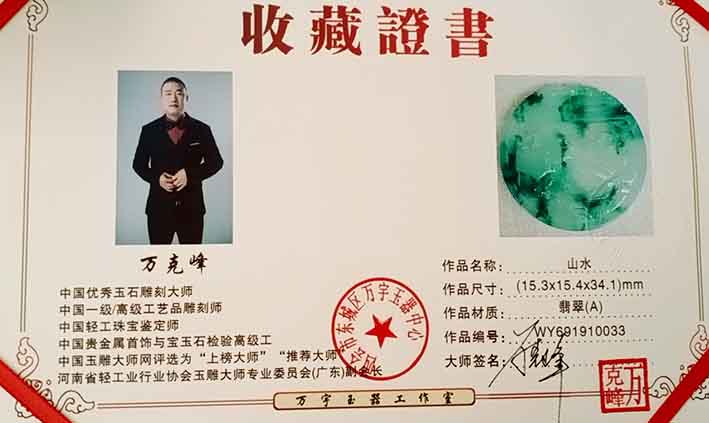 收藏證書
万克峰
中国优秀玉石雕刻大师
中国一级/高级工艺品雕刻师
中国轻工珠宝鉴定师
中国贵金属首饰与宝玉石检验高级工
中国玉雕大师网评选为“上榜大师”“推荐大师”
河南省轻工业行业协会玉雕大师专业委员会(广东)副会长
市东城区万宇玉器中心
作品名称: 山水
作品尺寸: (15.3x15.4x34.1)mm
作品材质: 翡翠(A)
作品编号: WY691910033
大师签名:
万克峰
万宇玉器工作室